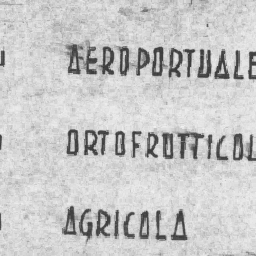 AEROPORTUALE
ORTOFRUTTICOL
AGRICOLA